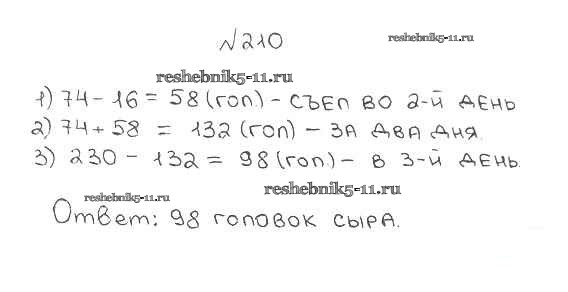 №210
reshebnik5-11.ru
reshebnik5-11.ru
1) 74-16=58(гол)-СЪЕЛ ВО 2-й ДЕНЬ
2) 74+58 = 132(гол)-ЗА ДВА ДНЯ.
3) 230-132=98(гол.)- В 3-й ДЕНЬ.
reshebnik5-11.ru
reshebnik5-11.ru
Ответ: 98 ГОЛОВОК СЫРА.